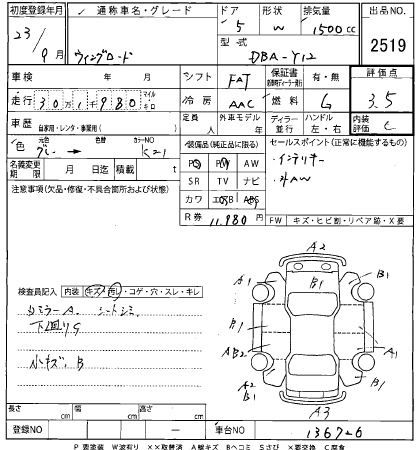 初度登録年月 通称車名・グレード ドア 形状 排気量 出品NO
23/9月 ウィングロード 5 W 1500cc 2519
型式
DBA-Y12
車検 年 月 シフト FAT 保証書 有・無 評価点
走行 30万1千980 マイル キロ 冷房 AAC 燃料 G 3.5
車歴 自家用・レンタ・事業用( ) 定員 人 外車モデル 年 ディーラー 並行 ハンドル 左・右 内装評価 C
色 元色 グレー → 色替 カラーNO K21 装備品(純正品に限る) セールスポイント(正常に機能するもの)
名義変更期限 月 日迄 積載 t PS PW AW ・インテリキー
注意事項(欠品・修復・不具合箇所および状態) SR TV ナビ ・外AW
カワ エアB ABS
R券 11,980円 FW キズ・ヒビ割・リペア跡・X要
A2
A1 B1 B1
検査員記入 内装 キズ・汚レ・コゲ・穴・スレ・キレ
右ミラーA. シートシミ B1
下廻りS AB2 A1
小キズ. B A2 B1 B1
A3
長さ cm 幅 cm 高さ cm
登録NO ー 車台NO 136726
P 要塗装 W波有り ××取替済 A線キズ Bヘコミ Sさび ×要交換 C腐食